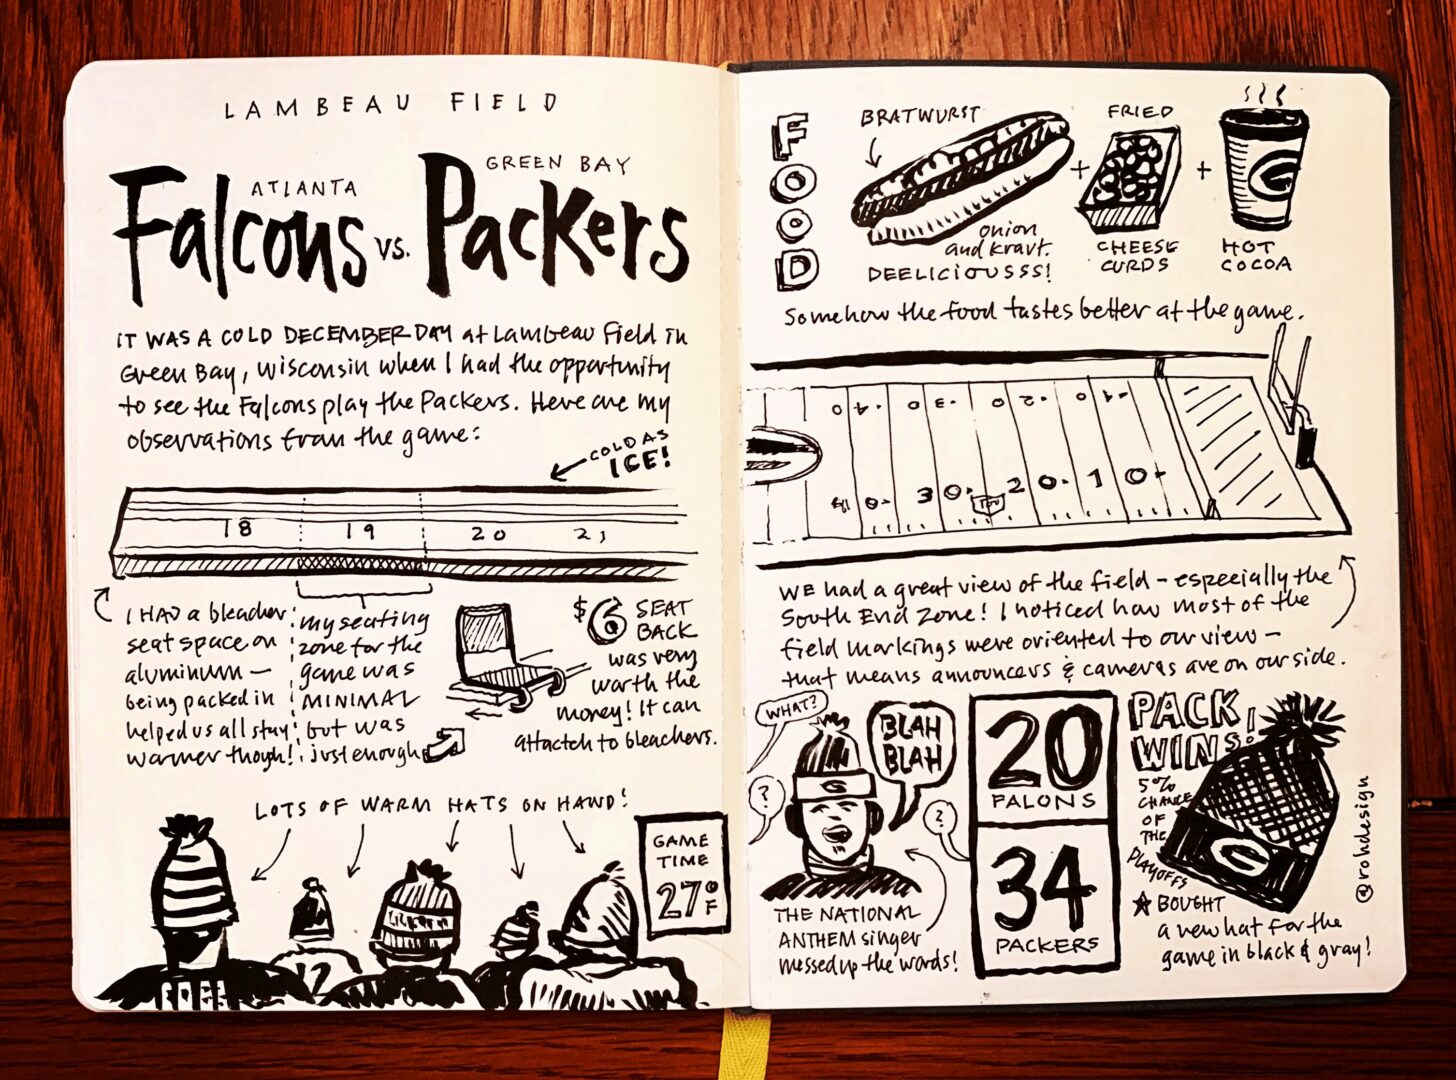 LAMBEAU FIELD
ATLANTA
GREEN BAY
Falcons vs. Packers
IT WAS A COLD DECEMBER DAY at Lambeau Field in
Green Bay, Wisconsin when I had the opportunity
to see the Falcons play the Packers. Here are my
observations from the game:
COLD AS
ICE!
18 19 20 21
I HAD a bleacher
seat space on
aluminum —
being packed in
helped us all stay
warmer though!
my seating
zone for the
game was
MINIMAL
but was
just enough
$6 SEAT
BACK
was very
worth the
money! It can
attactch to bleachers.
LOTS OF WARM HATS ON HAND!
GAME
TIME
27°F
12
FOOD
BRATWURST
onion
and kraut.
DEELICIOUSSS!
+
FRIED
CHEESE
CURDS
+
G
HOT
COCOA
Somehow the food tastes better at the game.
40 30 20 10
40 30 20 10
WE had a great view of the field — especially the
South End Zone! I noticed how most of the
field markings were oriented to our view —
that means announcers & cameras are on our side.
WHAT?
?
BLAH
BLAH
?
G
THE NATIONAL
ANTHEM singer
messed up the words!
20
FALONS
34
PACKERS
PACK
WINS!
5%
CHANCE
OF
THE
PLAYOFFS
G
BOUGHT
a new hat for the
game in black & gray!
@rohdesign